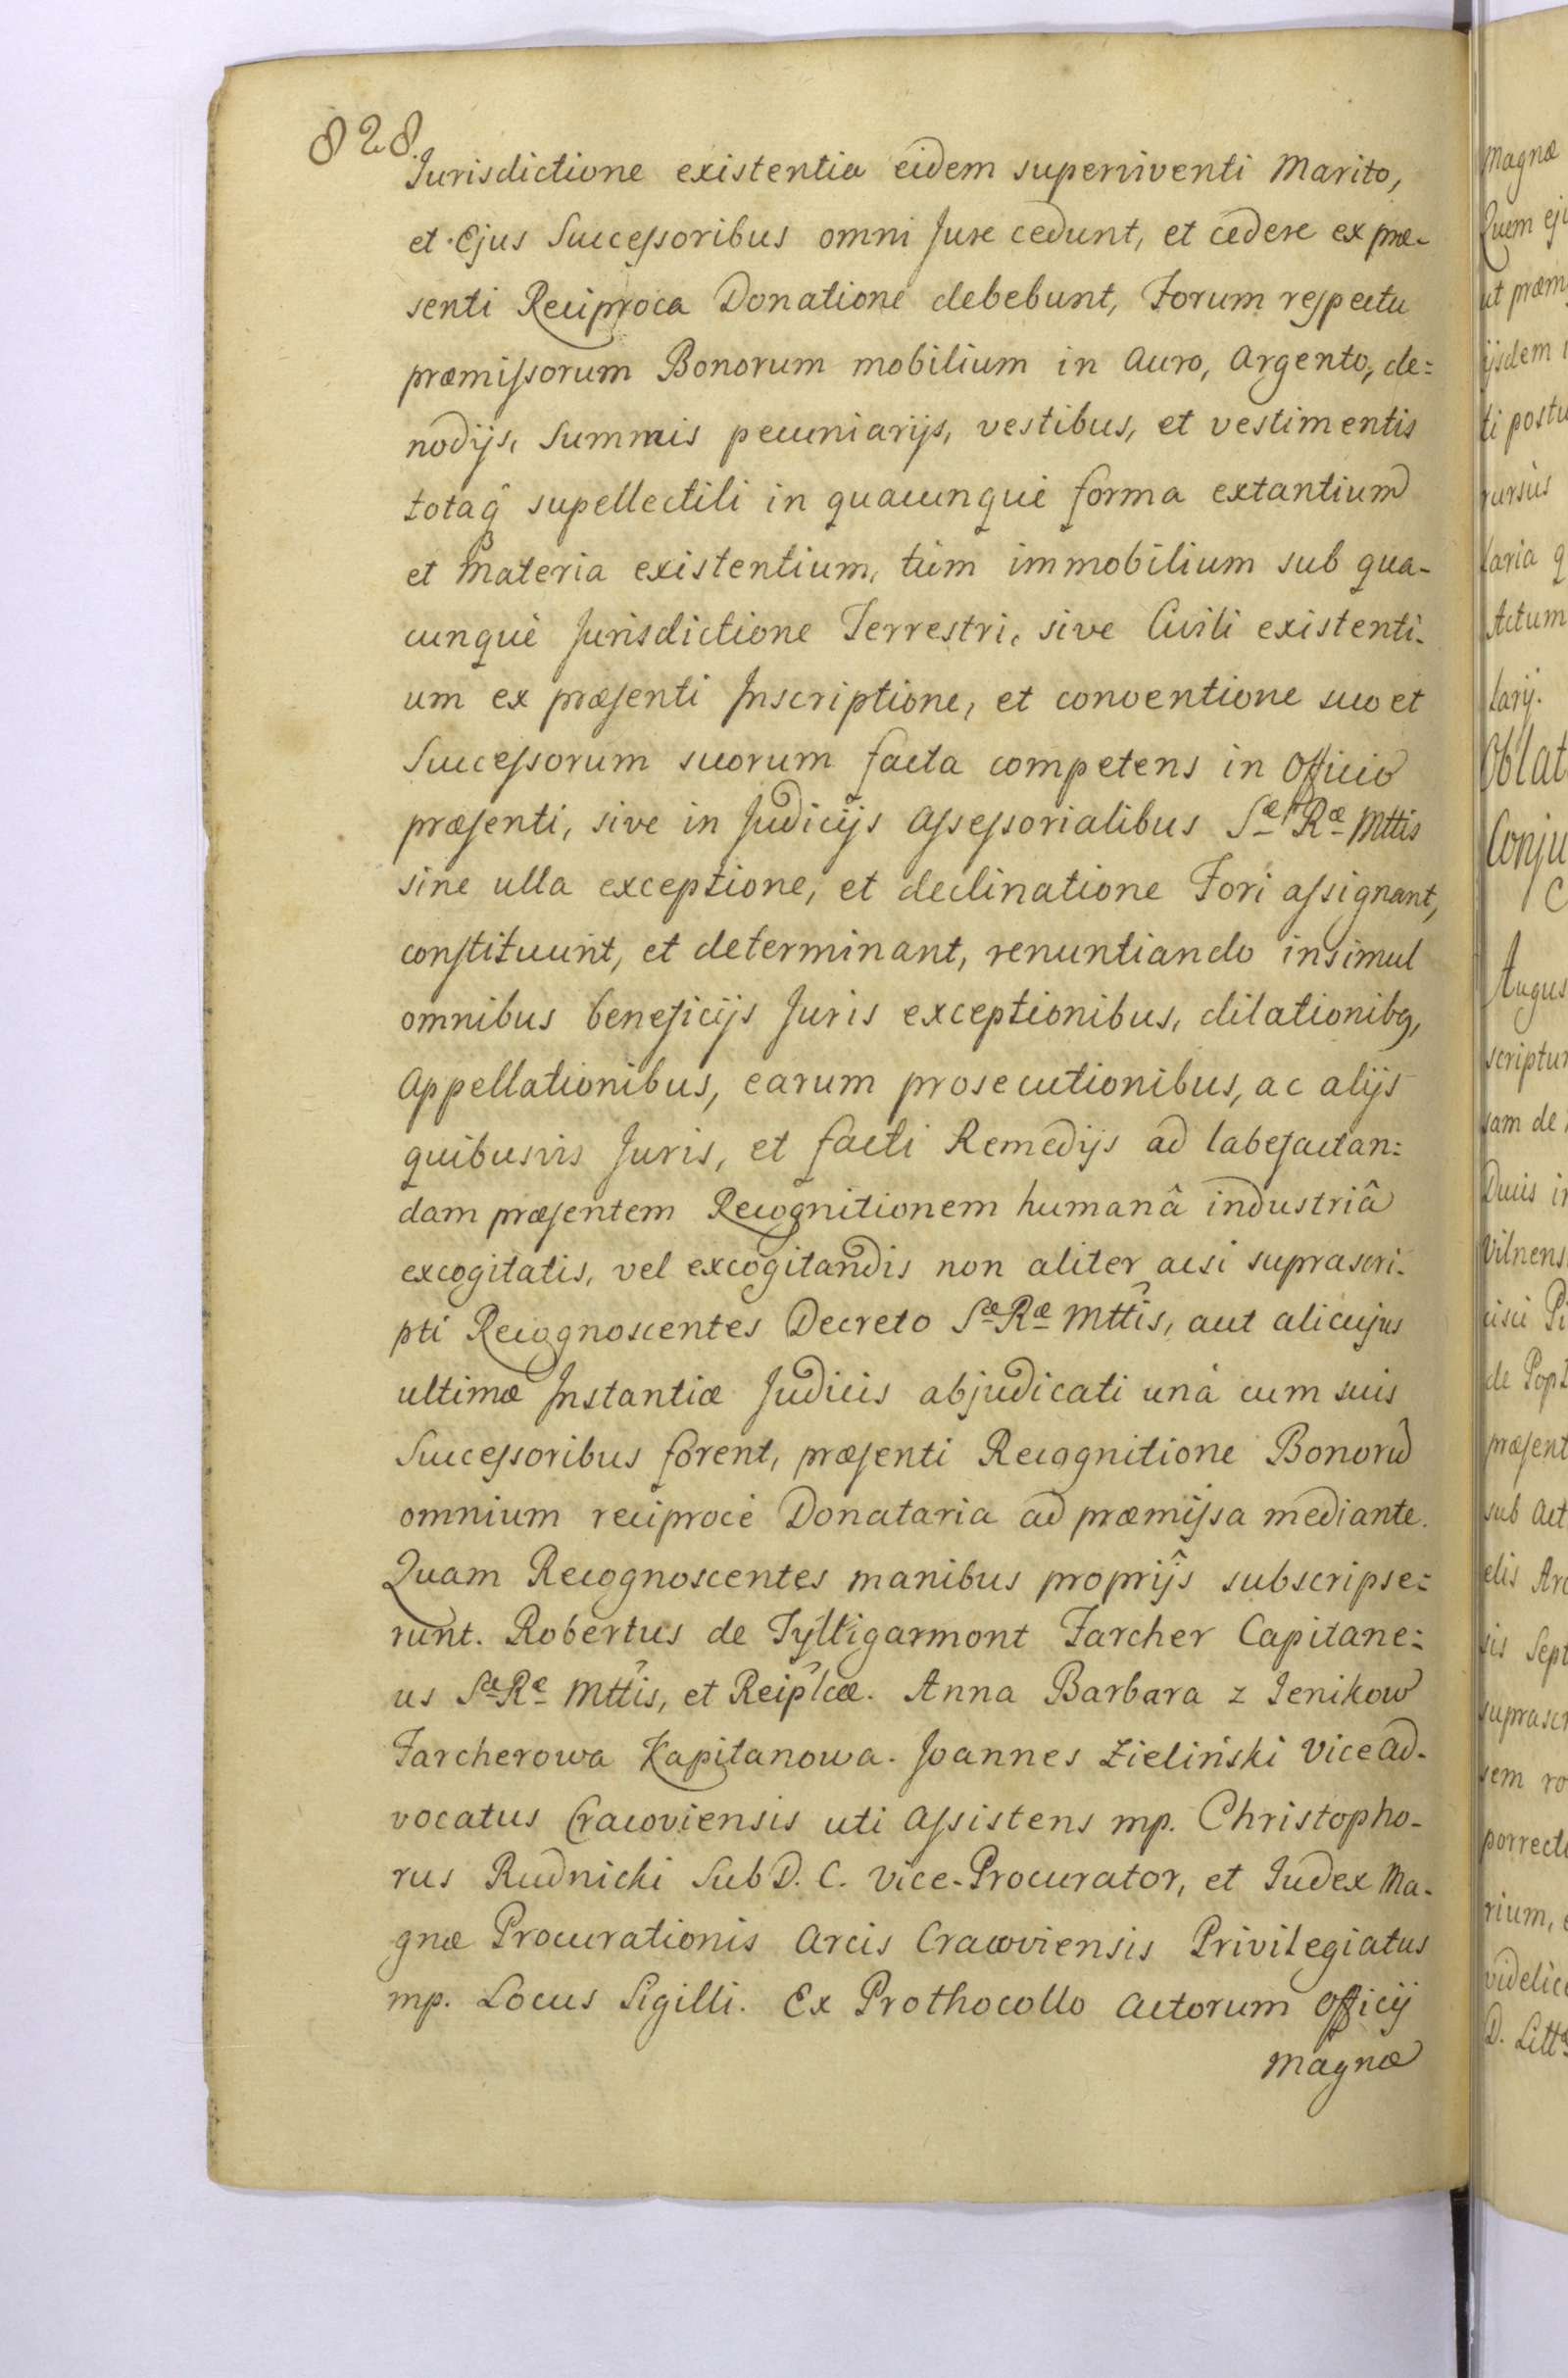 828.
Jurisdictione existentia eidem superviventi Marito,
et Ejus Successoribus omni Jure cedunt, et cedere ex præ-
senti Reciproca Donatione debebunt, Forum respectu
præmissorum Bonorum mobilium in Auro, Argento, cle=
nodijs, Summis pecuniarijs, vestibus, et vestimentis
totaq̃ supellectili in quacunque forma extantium
et Materia existentium, tùm immobilium sub qua-
cunquè Jurisdictione Terrestri, sive Civili existenti-
um ex præsenti Inscriptione, et conventione suo et
Successorum suorum facta competens in Officio
præsenti, sive in Judicijs Assessorialibus Sæ Ræ Mttis
sine ulla exceptione, et declinatione Fori assignant,
constituunt, et determinant, renuntiando insimul
omnibus beneficijs Juris exceptionibus, dilationibq,
Appellationibus, earum prosecutionibus, ac alijs
quibusvis Juris, et facti Remedijs ad labefactan=
dam præsentem Recognitionem humanâ industriâ
excogitatis, vel excogitandis non aliter acsi suprascri-
pti Recognoscentes Decreto Sæ Ræ Mttis, aut alicujus
ultimæ Instantiæ Judicis abjudicati unà cum suis
Successoribus forent, præsenti Recognitione Bonorũ
omnium reciprocè Donataria ad præmissa mediante.
Quam Recognoscentes manibus proprijs subscripse=
runt. Robertus de Tyltigarmont Farcher Capitane=
us Sæ Ræ Mttis, et Reiplcæ. Anna Barbara z Jenikow
Farcherowa Kapitanowa. Joannes Zieliński Vice Ad-
vocatus Cracoviensis uti Assistens mp. Christopho-
rus Rudnicki Sub D. C. Vice-Procurator, et Judex Ma-
gnæ Procurationis Arcis Cracoviensis Privilegiatus
mp. Locus Sigilli. Ex Prothocollo Actorum Officij
Magnæ